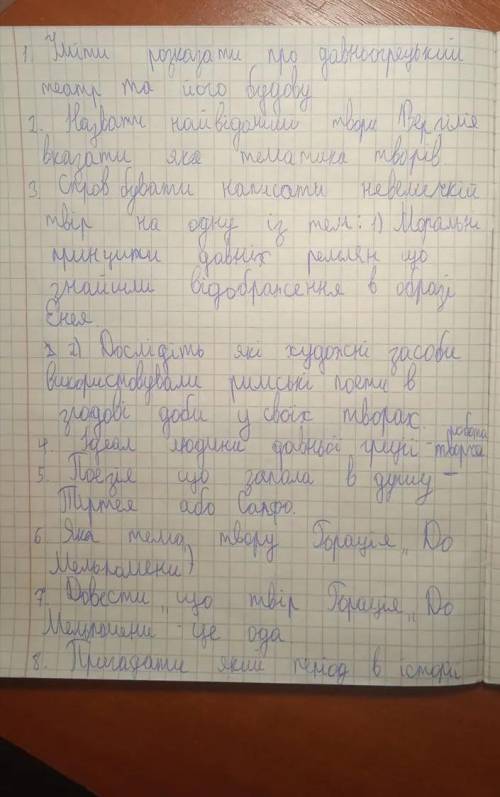 1. Уміти розказати про давногрецький
театр та його будову
2. Назвати найвідоміші твори Вергілія
вказати яка тематика творів
3. Спробувати написати невеликий
твір на одну із тем: 1) Моральні
принципи давніх римлян що
знайшли відображення в образі
Енея
2) Дослідіть які художні засоби
використовували римські поети в
доби у своїх творах
4. Ідеал людини давньої греції - творча робота
5. Поезія що запала в душу -
Тіртея або Сапфо.
6. Яка тема твору Горація „До
Мельпомени)
7. Довести що твір Горація „До
Мельпомени - це ода
8. Пригадати який період в історі